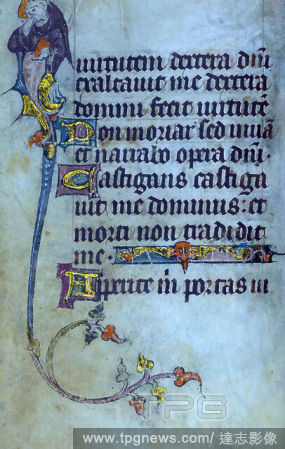 uirtutem dextera dm̄
exaltauit me dextera
domini fecit uirtutē
Non moriar sed uiuā
et narrabo opera dm̄.
Castigans castiga
uit me dominus: et
morti non tradidit
me.
Aperite m̄ portas iu
TPG
www.tpgnews.com/ 達志影像